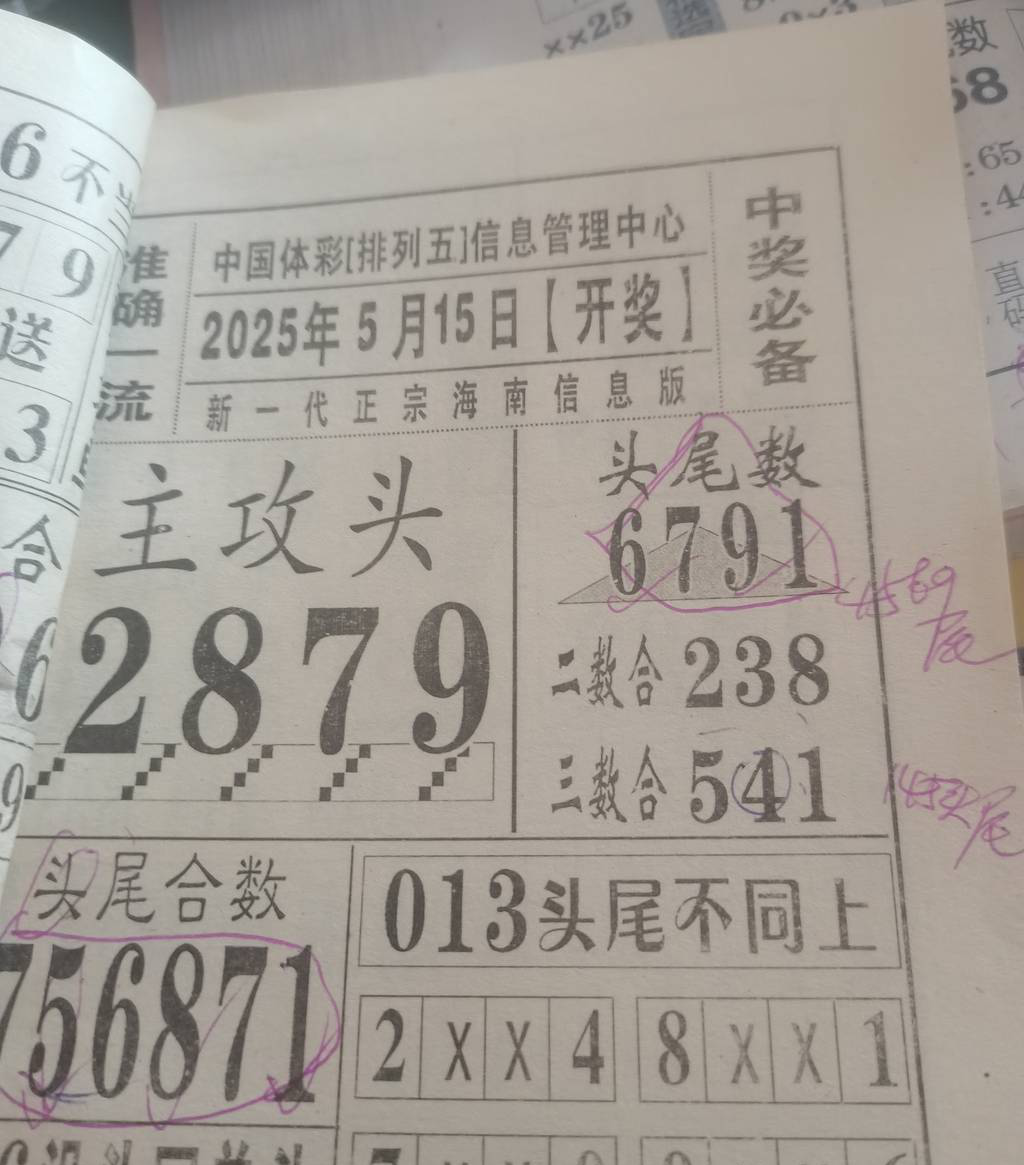 ××25
数
68
:65
:44
直码
6不当
79
送
3
合
6
9
准确一流
中国体彩[排列五]信息管理中心
2025年5月15日【开奖】
新一代正宗海南信息版
中奖必备
主攻头
2879
头尾数
6791
4569尾
二数合 238
三数合 541
145头尾
头尾合数
756871
013头尾不同上
2 X X 4
8 X X 1